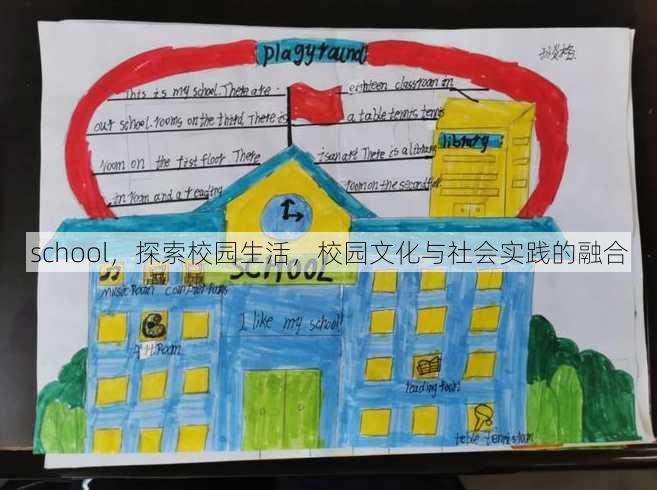 playground
This is my school. There are eithteen classroom in
our school. rooms on the third. There is a table tennis tenns
room on the first floor. There is an art There is a library
library
in room and a reading room on the second floor
school，探索校园生活，校园文化与社会实践的融合
SCHOOL
music room computer rooms
I like my school!
art Room
reading room
table tennis room